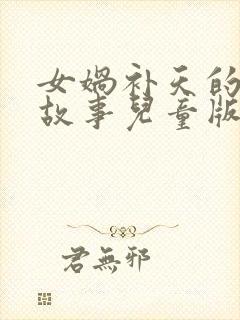 女媧补天的
故事兒童版
君無邪